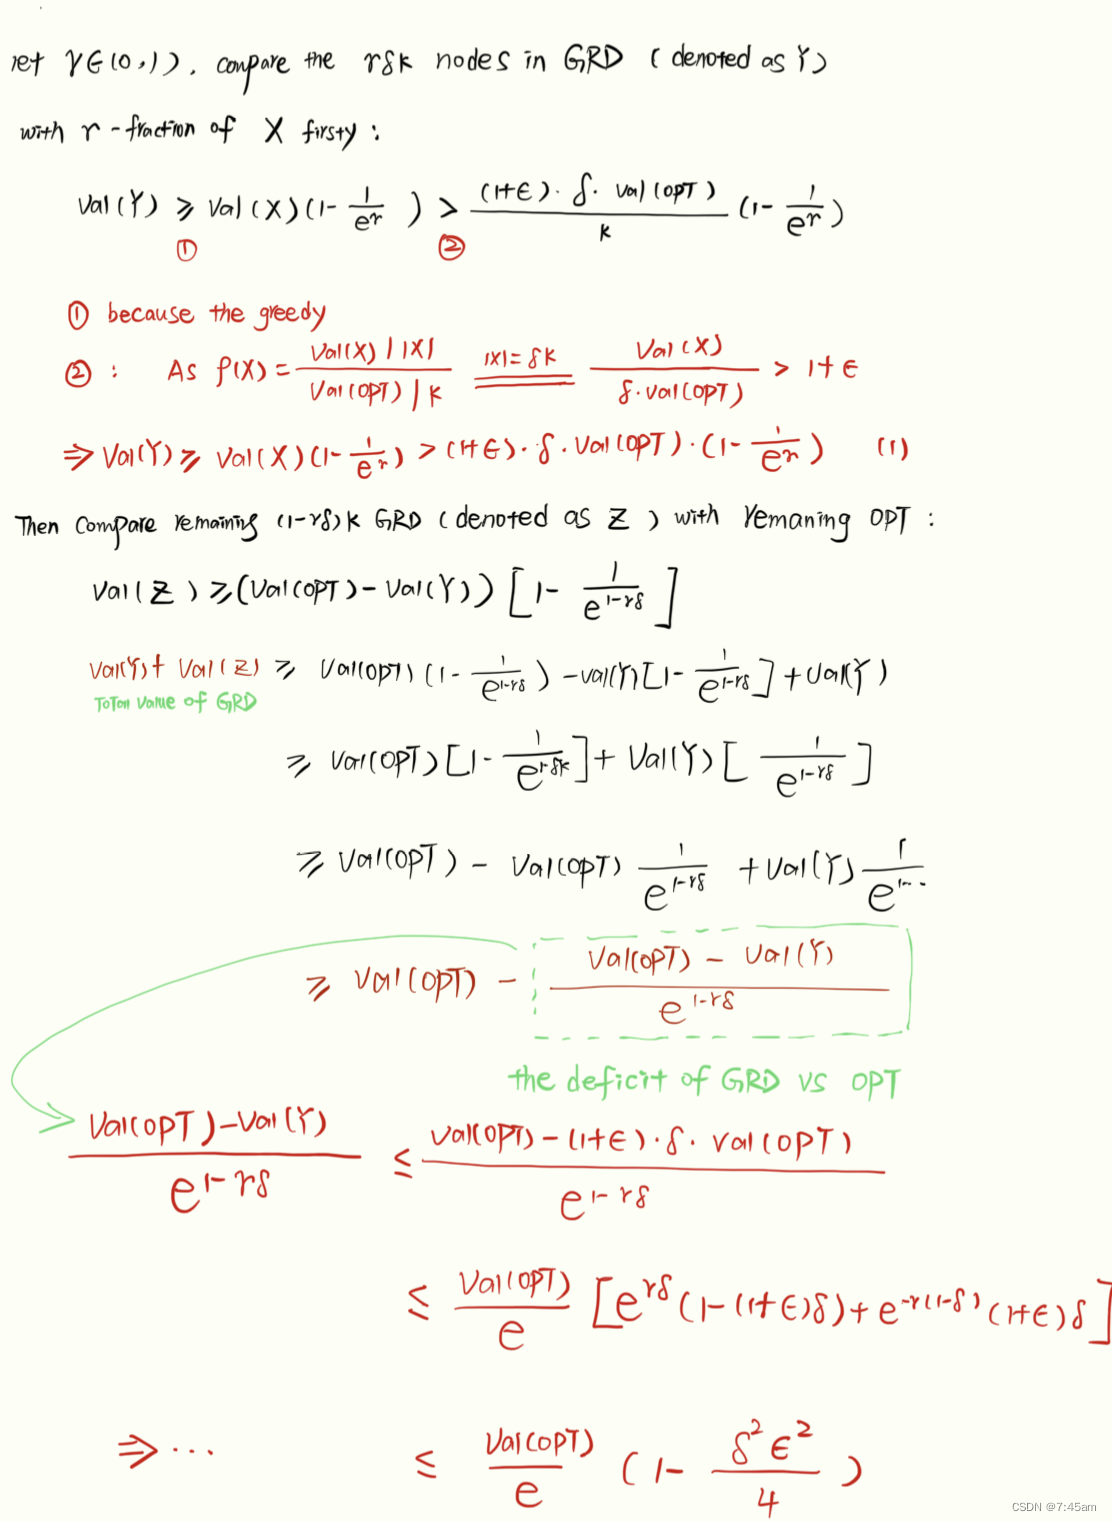 let γ∈(0,1)). compare the rδk nodes in GRD (denoted as Y)
with r-fraction of X firsty:
Val(Y) ⩾ Val(X)(1-1/e^r) > ((1+ϵ)·δ·Val(OPT))/k (1-1/e^r)
① ②
① because the greedy
②: As ρ(X)=(Val(X)/|X|)/(Val(OPT)/k) =(|X|=δk)= Val(X)/(δ·Val(OPT)) > 1+ϵ
⇒ Val(Y)⩾ Val(X)(1-1/e^r) > (1+ϵ)·δ·Val(OPT)·(1-1/e^r) (1)
Then compare remaining (1-rδ)k GRD (denoted as Z) with remaning OPT:
Val(Z) ⩾(Val(OPT)-Val(Y))[1-1/e^(1-rδ)]
Val(Y)+Val(Z) ⩾ Val(OPT)(1-1/e^(1-rδ))-Val(Y)[1-1/e^(1-rδ)]+Val(Y)
Total value of GRD
⩾ Val(OPT)[1-1/e^(1-δk)]+Val(Y)[1/e^(1-rδ)]
⩾ Val(OPT) - Val(OPT) 1/e^(1-rδ) + Val(Y) 1/e^(1-..
⩾ Val(OPT) - (Val(OPT)-Val(Y))/e^(1-rδ)
the deficit of GRD vs OPT
(Val(OPT)-Val(Y))/e^(1-rδ) ≤ (Val(OPT)-(1+ϵ)·δ·Val(OPT))/e^(1-rδ)
≤ Val(OPT)/e [e^(rδ)(1-(1+ϵ)δ)+e^(-r(1-δ))(1+ϵ)δ]
⇒... ≤ Val(OPT)/e (1-δ²ϵ²/4)
CSDN @7:45am